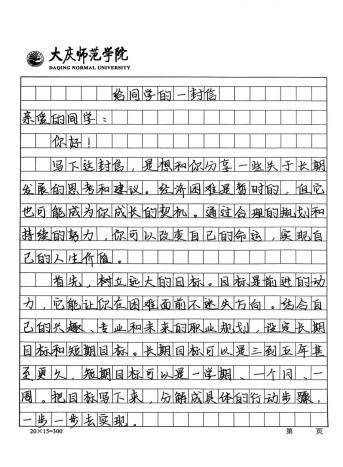 大庆师范学院
DAQING NORMAL UNIVERSITY
给同学的一封信
亲爱的同学：
你好！
写下这封信，是想和你分享一些关于长期
发展的思考和建议。经济困难是暂时的，但它
也可能成为你成长的契机。通过合理的规划和
持续的努力，你可以改变自己的命运，实现自
己的人生价值。
首先，树立远大的目标。目标是前进的动
力，它能让你在困难面前不迷失方向。结合自
己的兴趣、专业和未来的职业规划，设定长期
目标和短期目标。长期目标可以是三到五年甚
至更久，短期目标可以是一学期、一个月、一
周。把目标写下来，分解成具体的行动步骤，
一步一步去实现。
20×15=300 第 页